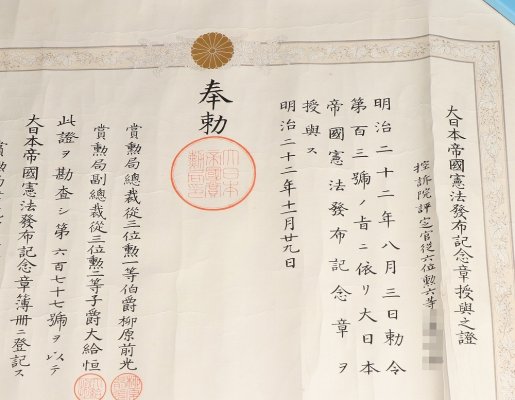 大日本帝國憲法發布記念章授與之證
控訴院評定官從六位勲六等
明治二十二年八月三日勅令
第百三號ノ旨ニ依リ大日本
帝國憲法發布記念章ヲ
授與ス
明治二十二年十一月廿九日
奉勅
大日本帝國賞勲局印
賞勲局總裁從三位勲一等伯爵柳原前光
賞勲局副總裁從三位勲二等子爵大給恒
此證ヲ勘査シ第六百七十七號ヲ以テ
大日本帝國憲法發布記念章簿冊ニ登記ス